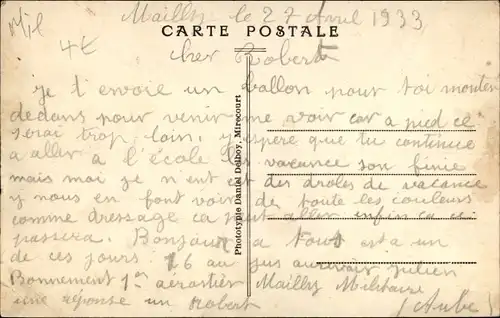 Mil
4€
Mailly le 27 Avril 1933
CARTE POSTALE
cher Robert
je t'envoie un ballon pour toi monter
dedans pour venir me voir car a pied ce
serai trop loin. j'espere que tu continue
a aller à l'école les vacance son finie
mais moi je n'ent ait des droles de vacance
y nous en font voir de toute les couleurs
comme dressage ca peut aller enfin ca
passera. Bonjour a tous est a un
de ces jours. 16 au jus aurevoir julien
Bonnement 1er aerostier Mailly Militaire
une réponse un Robert (Aube)
Phototypie Daniel Delboy, Mirecourt